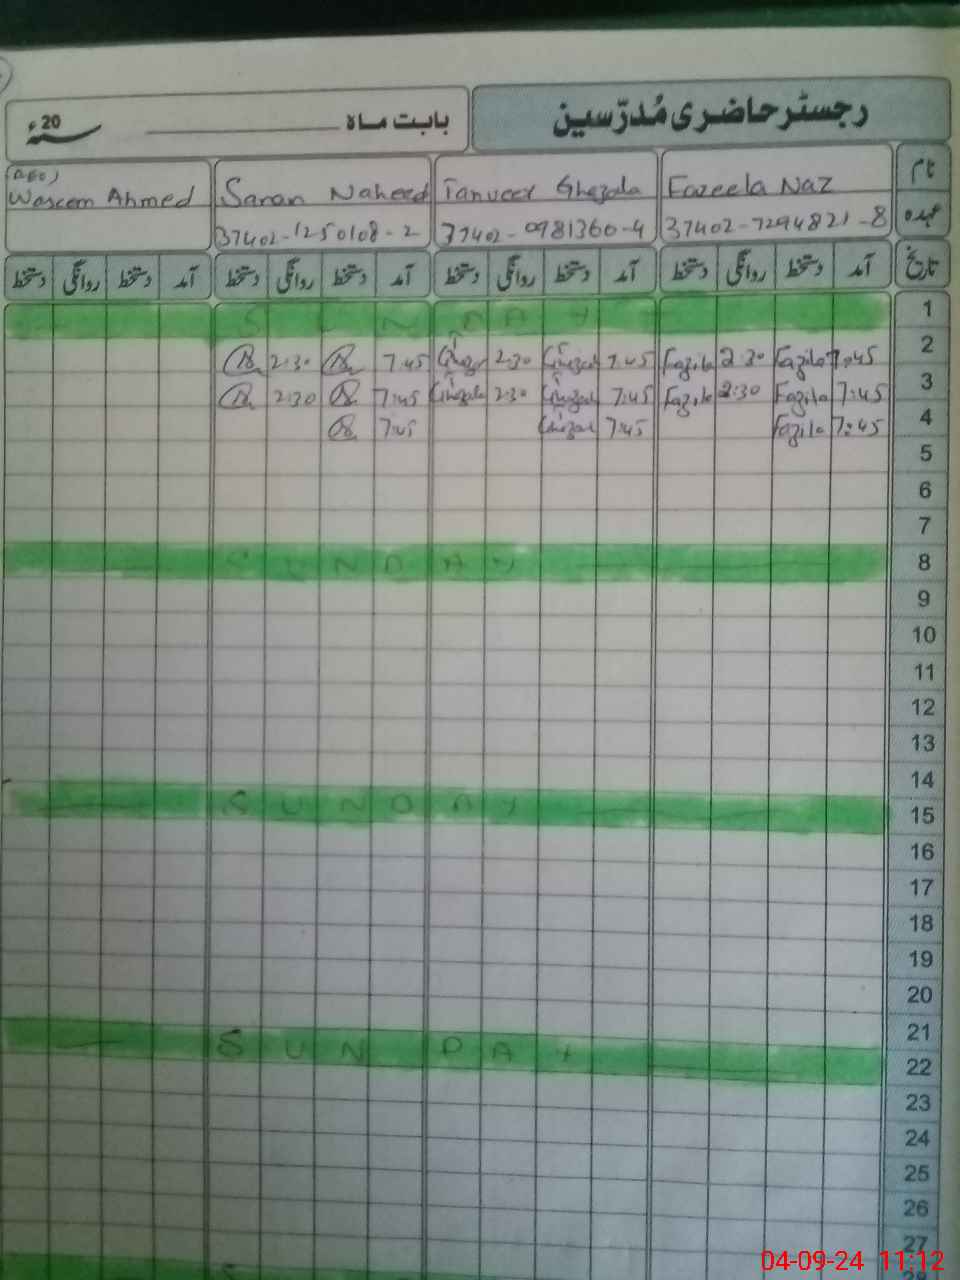 رجسٹر حاضری مُدرّسین
بابت ماہ ــــــــ 20ء
نام Fazeela Naz Tanveer Ghazala Saran Naheed (AEO) Waseem Ahmed
عہدہ 37402-7294821-8 37402-0981360-4 37402-1250108-2
تاریخ آمد دستخط روانگی دستخط آمد دستخط روانگی دستخط آمد دستخط روانگی دستخط آمد دستخط روانگی دستخط
1 SUNDAY
2 7:45 Fazila 2:30 Fazila 7:45 Ghazal 2:30 7:45 2:30
3 7:45 Fazila 2:30 Fazila 7:45 Ghazal 2:30 Ghazala 7:45 2:30
4 7:45 Fazila 7:45 Ghazal 7:45
5
6
7
8 SUNDAY
9
10
11
12
13
14
15 SUNDAY
16
17
18
19
20
21
22 SUNDAY
23
24
25
26
27
28
04-09-24 11:12